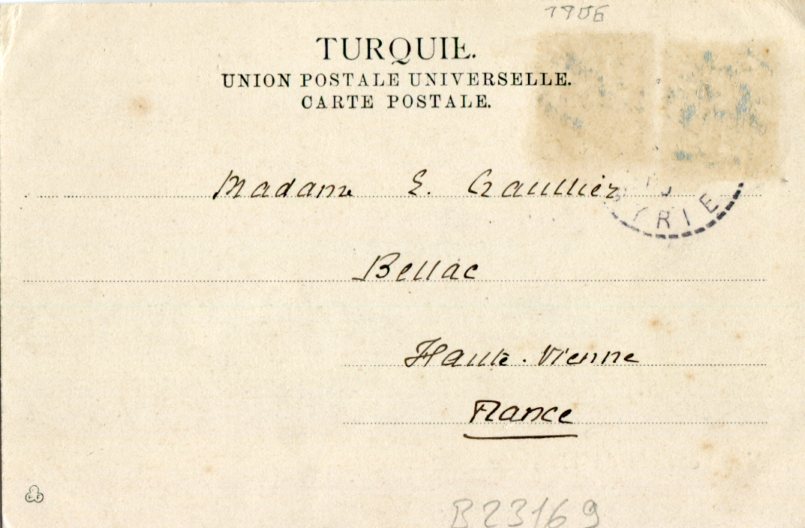 1906
TURQUIE.
UNION POSTALE UNIVERSELLE.
CARTE POSTALE.
Madame E.
SYRIE
Bellac
Haute-Vienne
France
B23169